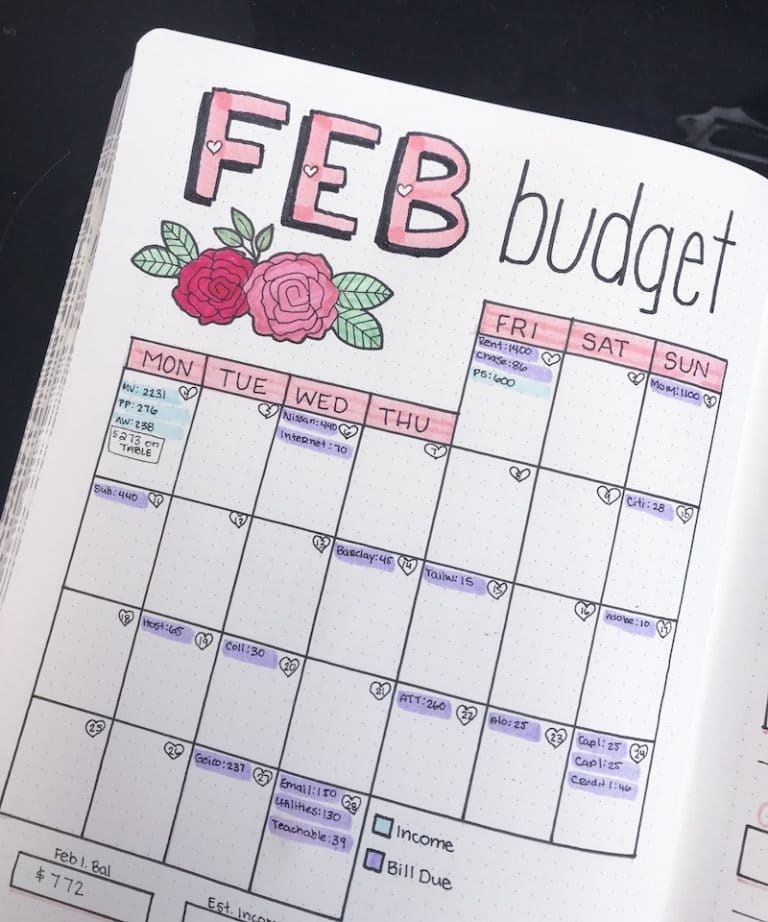 FEB budget
FRI SAT SUN
MON TUE WED THU
Rent: 1400 1
Chase: 86
PS: 600
2
Mom: 1100 3
MV: 2231 4
PP: 276
AW: 238
$273 on
TABLE
5
Nissan: 440 6
Internet: 70
7
8
9
Citi: 28 10
Sub: 440 11
12
13
Barclay: 45 14
Tailw: 15 15
16
Adobe: 10 17
18
Host: 65 19
Coll: 30 20
21
ATT: 260 22
Alo: 25 23
Cap1: 25 24
Cap1: 25
Credit1: 46
25
26
Geico: 237 27
Email: 150 28
Utilities: 130
Teachable: 39
Income
Bill Due
Feb 1. Bal
$ 772
Est. Incom